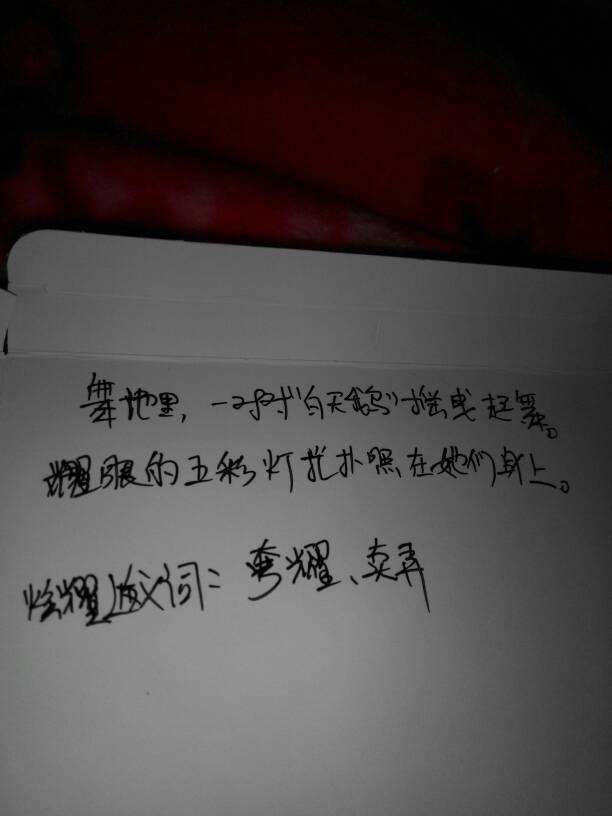 舞池里，一对对"白天鹅"摇曳起舞。
耀眼的五彩灯光扑照在她们身上。
炫耀近义词：夸耀、卖弄